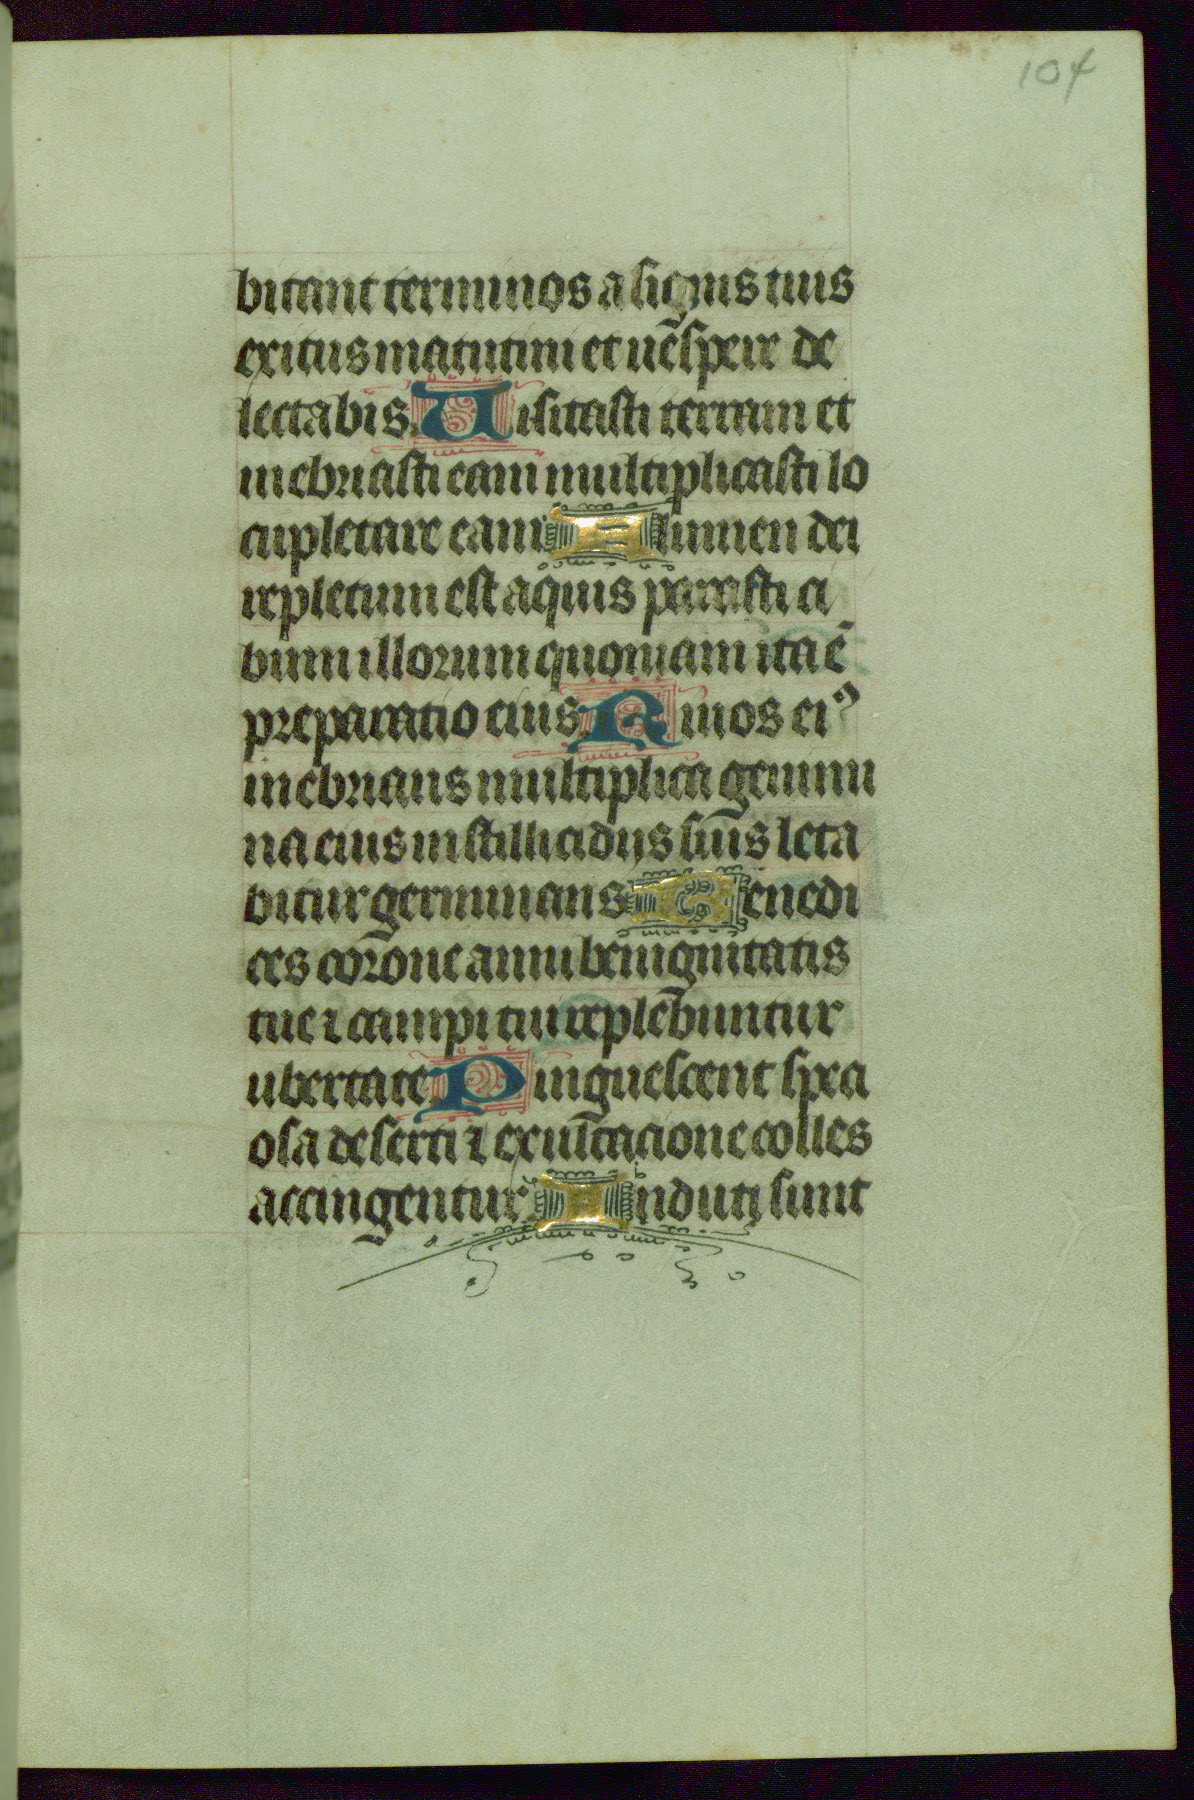 104
bitant terminos a signis tuis
exitus matutini et uēspere de
lectabis. Uisitasti terram et
inebriasti eam multiplicasti lo
cupletare eam. Flumen dei
repletum est aquis parasti ci
bum illorum quoniam ita ē
preparatio eius. Riuos eiꝰ
inebrians multiplica genimi
na eius in stillicidijs suis leta
bitur germinans. Benedi
ces corone anni benignitatis
tue ⁊ campi tui replebuntur
ubertate. Pinguescent speci
osa deserti ⁊ exultacione colles
accingentur. Induti sunt